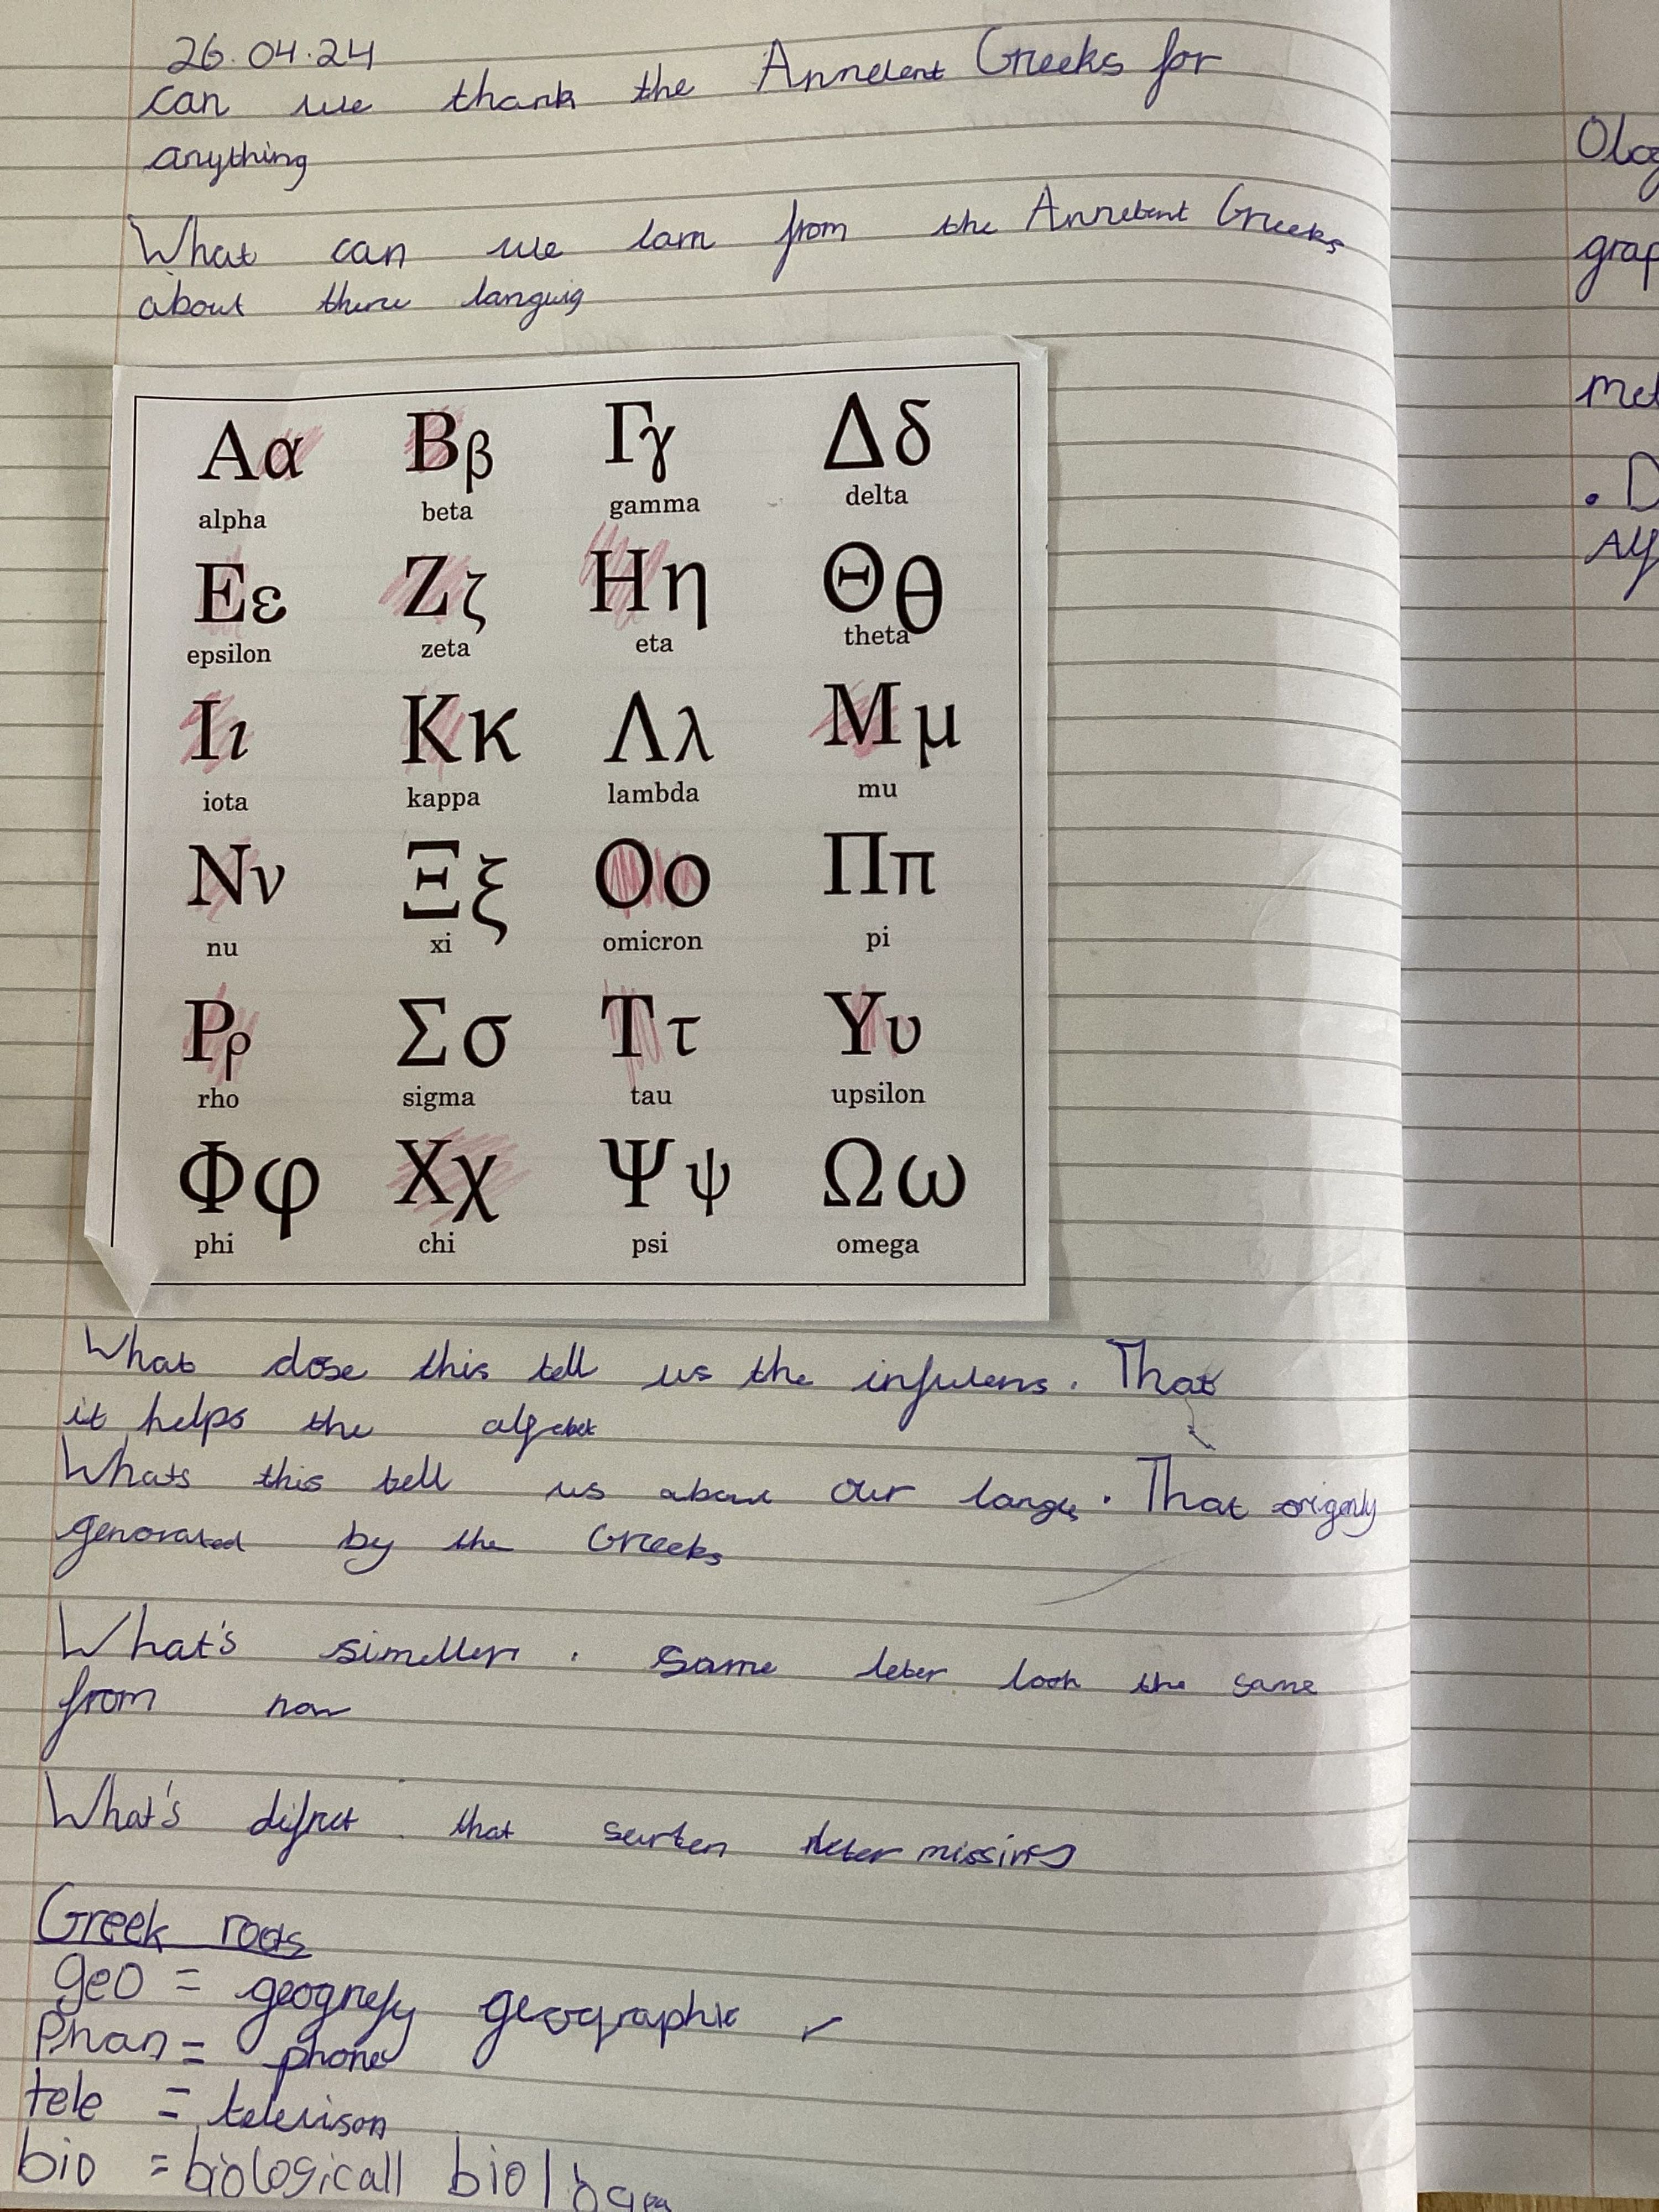 26.04.24
can we thank the Anncient Greeks for
anything
What can we larn from the Anncient Greeks
about there languig
Αα Ββ Γγ Δδ
alpha beta gamma delta
Εε Ζζ Ηη Θθ
epsilon zeta eta theta
Ιι Κκ Λλ Μμ
iota kappa lambda mu
Νν Ξξ Οο Ππ
nu xi omicron pi
Ρρ Σσ Ττ Υυ
rho sigma tau upsilon
Φφ Χχ Ψψ Ωω
phi chi psi omega
What dose this tell us the infulens. That
it helps the alfabet
Whats this tell us about our langu. That origenly
genorated by the Greeks
What's simeller. Same leter look the same
from now
What's difret that serten leter missing
Greek roots
geo = geogrefy geographic
Phon = phone
tele = televison
bio = biologicall
Olog
grap
met
. D
Alf